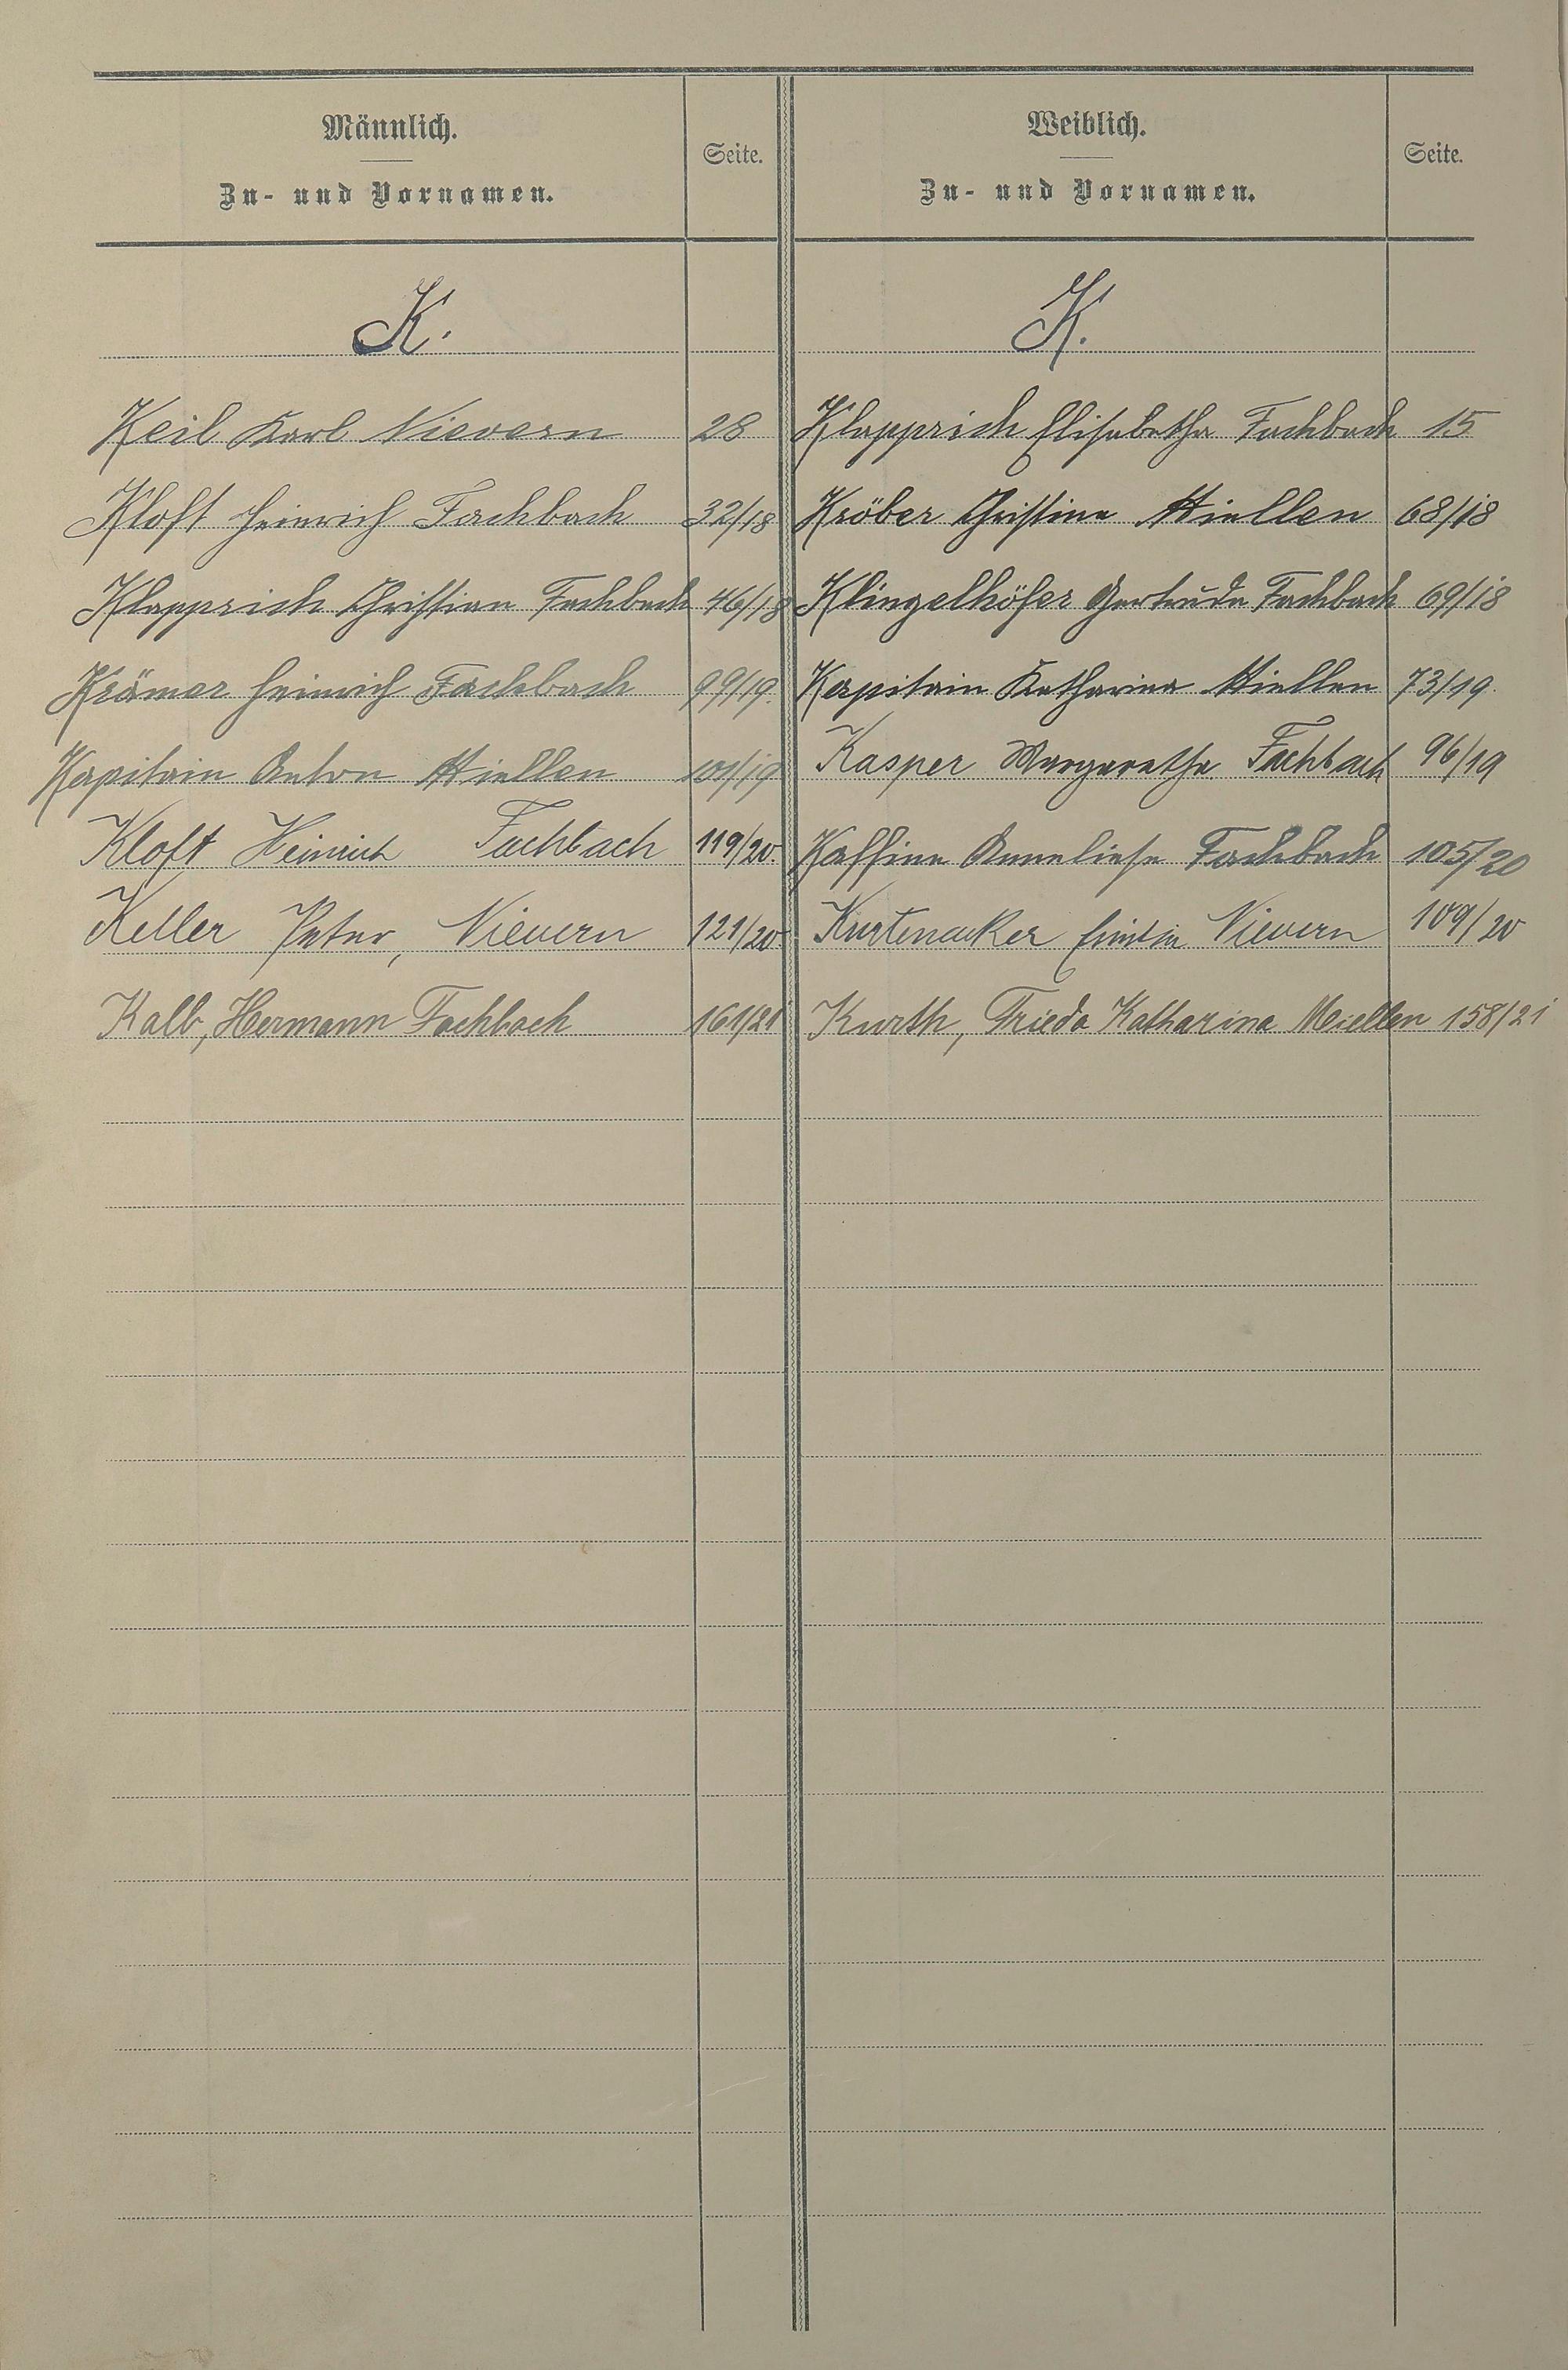 Männlich.
Zu- und Vornamen.
Seite.
Weiblich.
Zu- und Vornamen.
Seite.
K.
K.
Keil Karl Nievern 28
Klapprich Elisabetha Fachbach 15
Kloft Heinrich Fachbach 32/18
Kröber Christine Miellen 68/18
Klapprich Christian Fachbach 46/18
Klingelhöfer Gertrude Fachbach 69/18
Krämer Heinrich Fachbach 99/19.
Kapitain Katharina Miellen 73/19.
Kapitain Anton Miellen 101/19
Kasper Margaretha Fachbach 96/19
Kloft Heinrich Fachbach 119/20.
Kaffine Anneliese Fachbach 105/20
Keller Peter, Nievern 121/20
Kurtenacker Nievern 109/20
Kalb, Hermann Fachbach 161/21
Kurth, Frieda Katharina Miellen 158/21